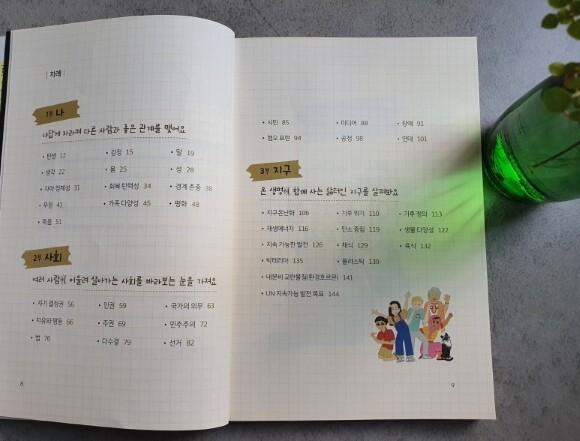 | 차례 |
1부 나
나답게 자라며 다른 사람과 좋은 관계를 맺어요
• 탄생 12 • 감정 15 • 말 19
• 생각 22 • 몸 25 • 성 28
• 자아 정체성 31 • 회복 탄력성 34 • 경계 존중 38
• 우정 41 • 가족 다양성 45 • 평화 48
• 죽음 51
2부 사회
여러 사람이 어울려 살아가는 사회를 바라보는 눈을 가져요
• 자기 결정권 56 • 인권 59 • 국가의 의무 63
• 자유와 평등 66 • 주권 69 • 민주주의 72
• 법 76 • 다수결 79 • 선거 82
8
• 시민 85 • 미디어 88 • 장애 91
• 혐오 표현 94 • 공정 98 • 연대 101
3부 지구
온 생명이 함께 사는 삶터인 지구를 살펴봐요
• 지구온난화 106 • 기후 위기 110 • 기후 정의 113
• 재생에너지 116 • 탄소 중립 119 • 생물 다양성 122
• 지속 가능한 발전 126 • 채식 129 • 육식 132
• 박테리아 135 • 플라스틱 139
• 내분비 교란물질(환경호르몬) 141
• UN 지속가능 발전 목표 144
9